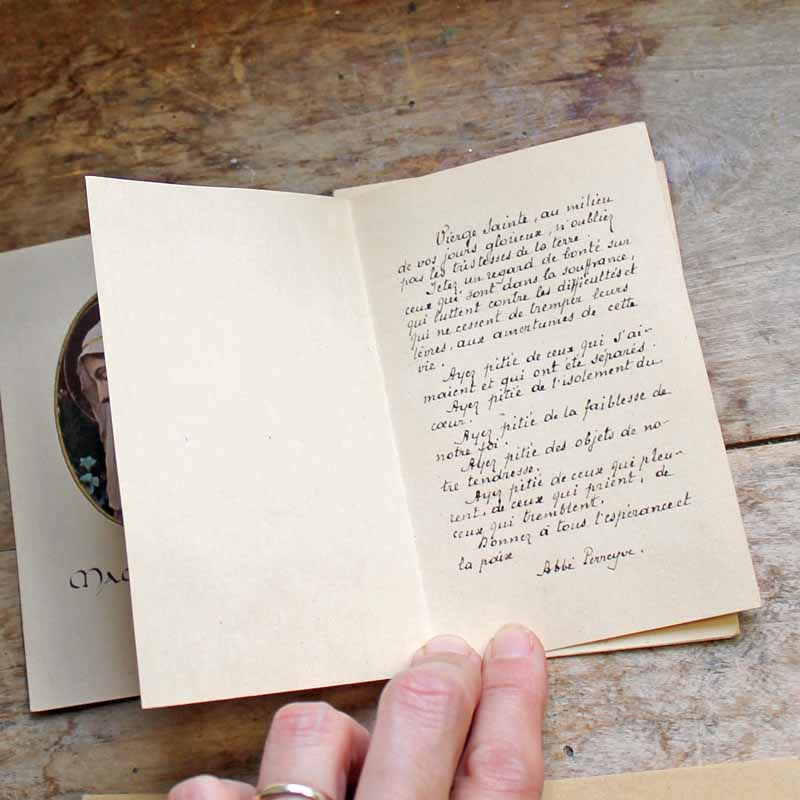 Vierge Sainte, au milieu
de vos jours glorieux, n'oubliez
pas les tristesses de la terre.
Jetez un regard de bonté sur
ceux qui sont dans la souffrance,
qui luttent contre les difficultés et
qui ne cessent de tremper leurs
lèvres, aux amertumes de cette
vie.
Ayez pitié de ceux qui s'ai-
maient et qui ont été séparés.
Ayez pitié de l'isolement du
cœur.
Ayez pitié de la faiblesse de
notre foi.
Ayez pitié des objets de no-
tre tendresse.
Ayez pitié de ceux qui pleu-
rent, de ceux qui prient, de
ceux qui tremblent.
Donnez à tous l'espérance et
la paix
Abbé Perreyve.
MAG